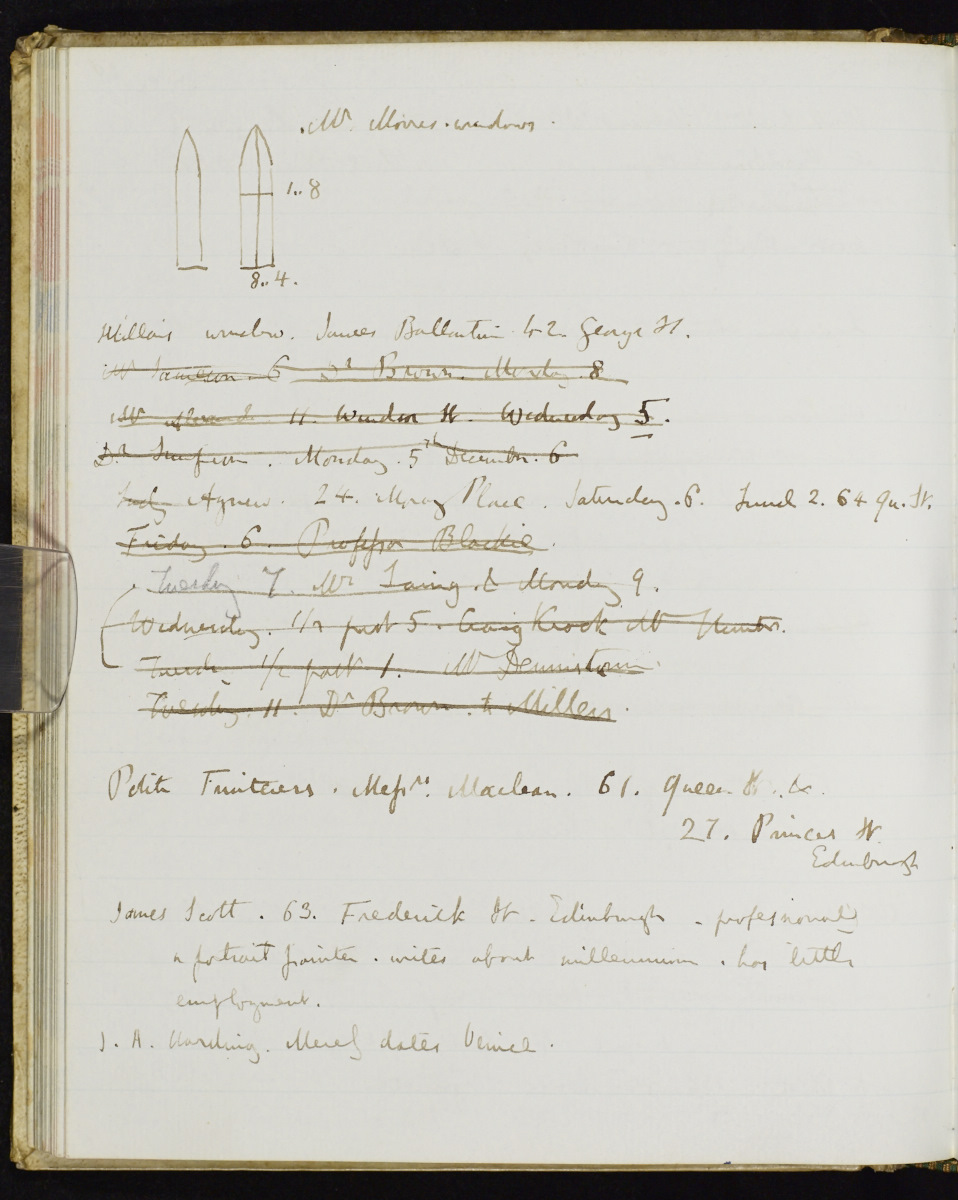 Mr Moires windows
1..8
8..4.
Millais window. James Ballantin 42 George St.
Mr Jameson. 6 Dr Brown. Monday. 8
Mr 11. Windsor St. Wednesday 5.
Dr Simpson. Monday. 5th December. 6
Lady Agnew. 24. Moray Place. Saturday. 6. Lund 2. 64 Qu. St.
Friday. 6. Professor Blackie.
Tuesday 7. Mr Laing. & Monday 9.
Wednesday. 1/2 past 5. Craig Krock Mr Hunter.
Tuesday 1/2 past 1. Mr Dennistoun.
Tuesday. 11. Dr Brown. to Millers.
Polite Fruiterers. Messrs. Maclean. 61. Queen St. &.
27. Princes St
Edinburgh
James Scott. 63. Frederick St. Edinburgh. professional
a portrait painter. writes about millennium. has little
employment.
J. A. Harding. dates Venice.